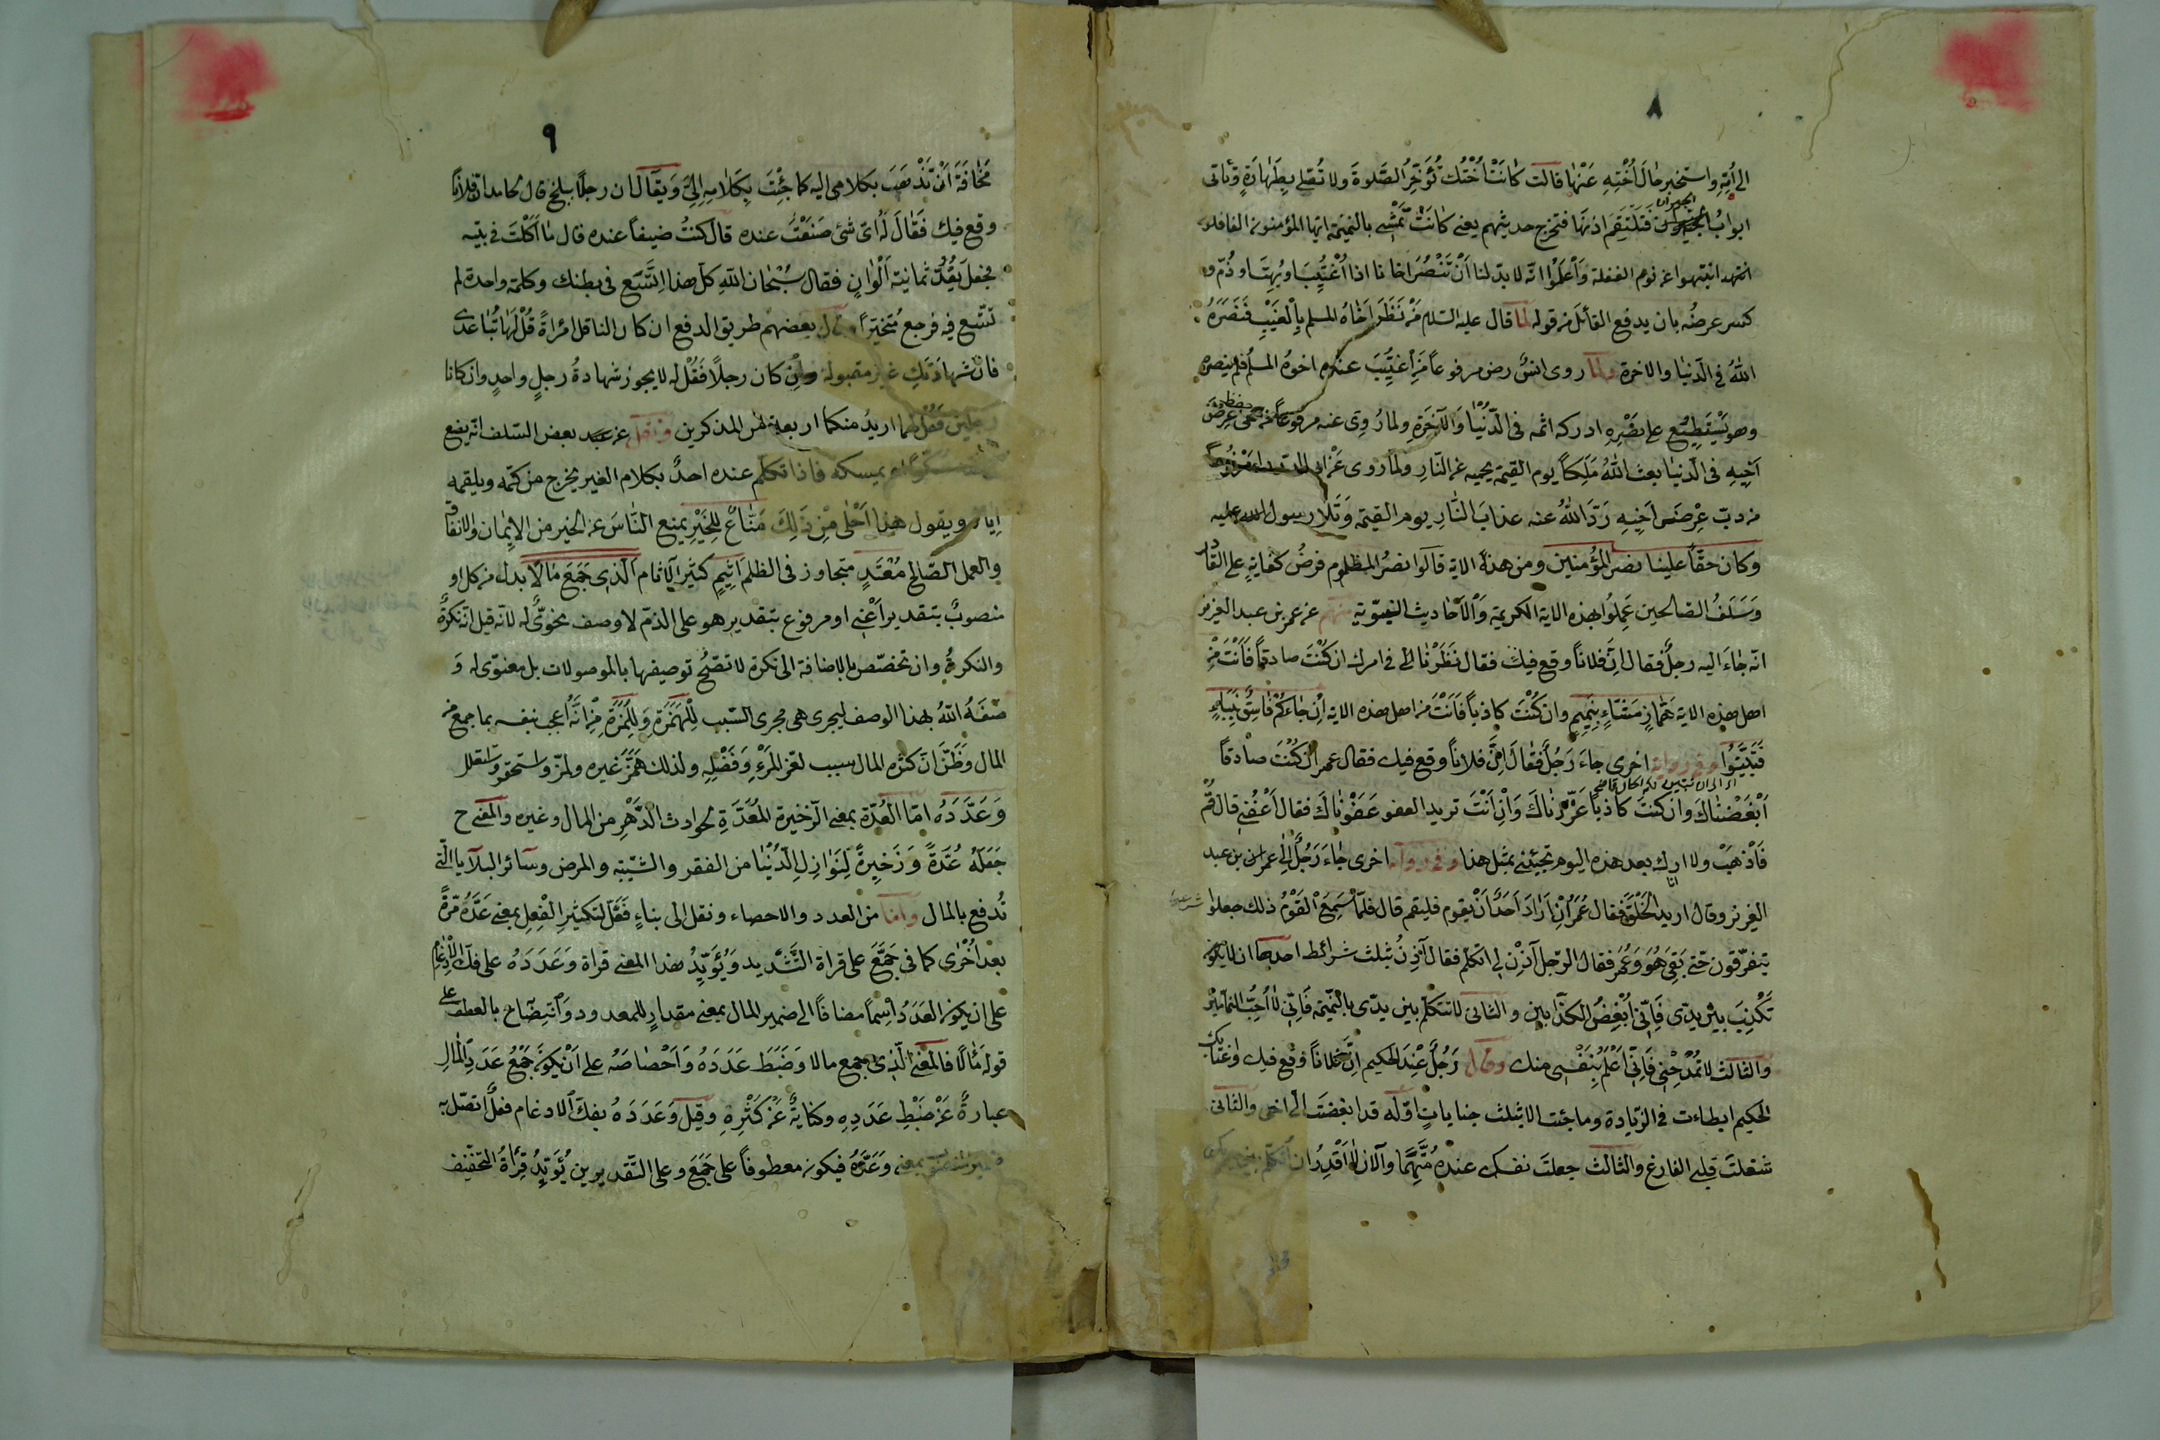 ٨
الى امه واستخبر حال اخته عنها قالت كانت اختك تؤخر الصلوة ولا تصلى بطهارة وتأتى
ابواب الجيران فتلتقم اذنها فتخرج حديثهم يعنى كانت تمشى بالنميمة ايها المؤمنون الغافلون
انتبهوا عن نوم الغفلة واعلموا انه لا بد لنا ان ننصر اخانا اذا اغتيب او بهت او ذم و
كسر عرضه بان يدفع القائل من قوله لما قال عليه السلام من نظر اخاه المسلم بالغيب فنصره
الله فى الدنيا والاخرة ولما روى انس رض مرفوعا من اغتيب عنده اخوه المسلم فلم ينصره
وهو يستطيع على نصره ادركه اثمه فى الدنيا والاخرة ولما روى عنه مرفوعا من حمى عرض
اخيه فى الدنيا بعث الله ملكا يوم القيمة يحميه عن النار ولما روى عن ابى الدرداء مرفوعا
من ذب عرض اخيه رد الله عنه عذاب النار يوم القيمة وتلا رسول الله عليه
وكان حقا علينا نصر المؤمنين ومن هذه الاية قالوا نصر المظلوم فرض كفاية على القادر
وسلف الصالحين عملوا بهذه الاية الكريمة والاحاديث النبوية منهم عن عمر بن عبد العزيز
انه جاء اليه رجل فقال ان فلانا وقع فيك فقال نظرنا الى فى امرك ان كنت صادقا فانت من
اهل هذه الاية هماز مشاء بنميم وان كنت كاذبا فانت من اهل هذه الاية ان جاءكم فاسق بنبأ
فتبينوا وفى رواية اخرى جاء رجل فقال ان فلانا وقع فيك فقال عمر ان كنت صادقا
ابغضناك وان كنت كاذبا عزرناك وان انت تريد العفو عفوناك فقال اعفنى قال قم
فاذهب ولا ارك بعد هذه اليوم تجيئنى بمثل هذا وفى رواية اخرى جاء رجل الى عمر بن عبد
العزيز وقال انا اريد الخلوة فقال عمر ان اراد احد ان يقوم فليقم قال فلما سمع القوم ذلك جعلوا
يتفرقون حتى بقى هو وعمر فقال الرجل ائذن لى اتكلم فقال آذن بثلث شرائط احدها ان لا يكون
تكذب بين يدى فانى ابغض الكذابين والثانى لا تتكلم بين يدى بالنميمة فانى لا احب النمامين
والثالث لا تمدحنى فانى اعلم بنفسى منك وقال رجل عند الحكيم ان فلانا وقع فيك واغتابك
الحكيم ابطاءت فى الزيادة وما جئت الا بثلث جنايات اوله قد ابغضت الى اخى والثانى
شغلت قلبى الفارغ والثالث جعلت نفسك عنده متهما والان لا اقدر ان اتكلم
٩
مخافة ان تذهب بكلامى اليه كما جئت بكلامه الى ويقال ان رجلا ببلخ قال لحامد ان فلانا
وقع فيك فقال له اى شئ صنعت عنده قال كنت ضيفا عنده قال ما اكلت فى بيته
فجعل يعد ثمانية الوان فقال سبحان الله كل هذا اتسع فى بطنك وكلمة واحدة لم
تتسع فيه فرجع متحيرا وقال بعضهم طريق الدفع ان كان الناقل امراة قل لها تباعدى
فان شهادتك غير مقبولة وان كان رجلا فقل له لا يجوز شهادة رجل واحد وان كانا
رجلين فقل لهما اريد منكما اربعة من المذكرين ونقل عن بعض السلف انه يضع
يمسكه فاذا تكلم عنده احد بكلام الغير يخرج من كمه ويلقمه
اياه ويقول هذا احلى من ذلك مناع للخير يمنع الناس عن الخير من الايمان والانفاق
والعمل الصالح معتد متجاوز فى الظلم اثيم كثير الاثام الذى جمع مالا بدل من كل او
منصوب بتقدير اعنى او مرفوع بتقدير هو على الذم لا وصف نحوى له لانه قيل انه نكرة
والنكرة وان تخصص بالاضافة الى نكرة لا تصح توصيفها بالموصولات بل معنوى له و
صفه الله بهذا الوصف ليجرى هى مجرى السبب للهمزة وللمزة من انه اعجب نفسه بما جمع من
المال وظن ان كثرة المال سبب لعز المرء وفضله ولذلك همز غيره ولمز واستحقر واستقلل
وعدده اما العدة بمعنى الذخيرة المعدة لحوادث الدهر من المال وغيره والمعنى ح
جعله عدة وذخيرة لنوازل الدنيا من الفقر والشيبة والمرض وسائر البلايا التى
تدفع بالمال واما من العدد والاحصاء ونقل الى بناء فعل لتكثير الفعل بمعنى عده مرة
بعد اخرى كما فى جمع على قراة التشديد ويؤيد هذا المعنى قراة وعدده على فك الادغام
على ان يكون العدد اسما مضافا الى ضمير المال بمعنى مقدار للمعدود وانتصابه بالعطف على
قوله مالا فالمعنى الذى جمع مالا وضبط عدده واحصاه على ان يكون جمع عدد المال
عبارة عن ضبط عدده وكناية عن كثرته وقيل وعدده بفك الادغام فعل اتصل به
بمعنى وعده فيكون معطوفا على جمع وعلى التقديرين يؤيد قراة التخفيف